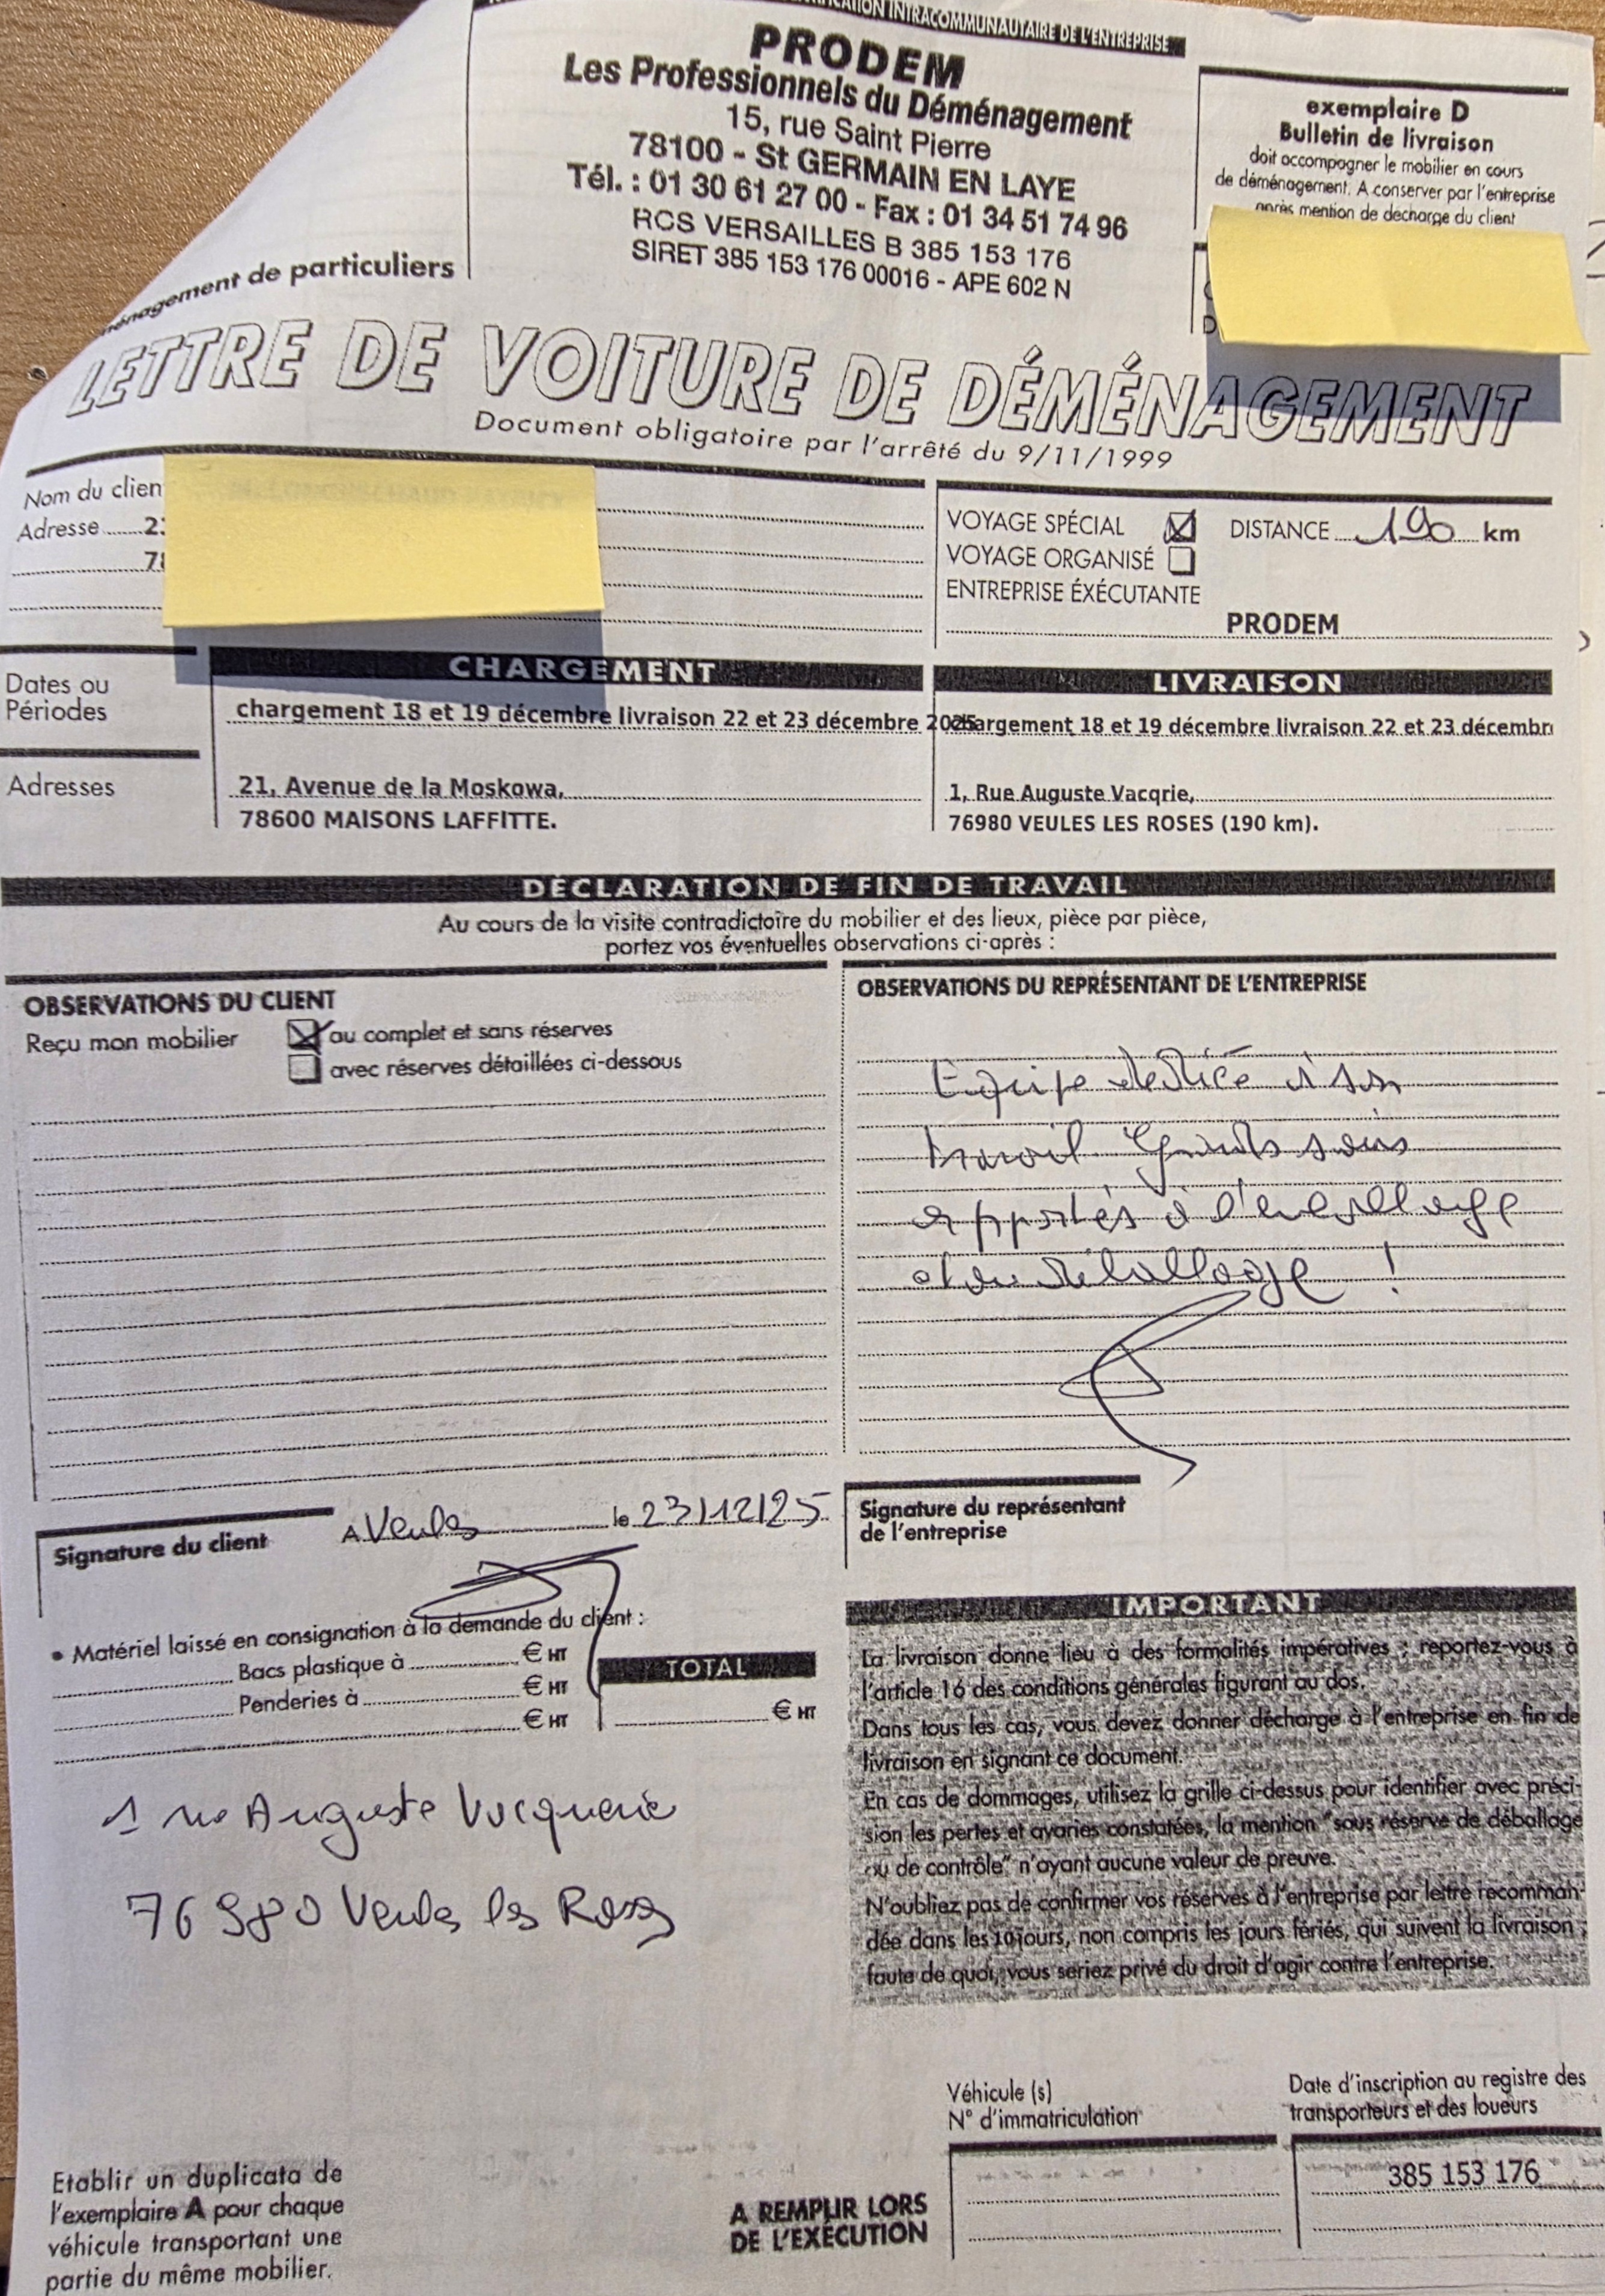 IFICATION INTRACOMMUNAUTAIRE DE L'ENTREPRISE
PRODEM
Les Professionnels du Déménagement
15, rue Saint Pierre
78100 - St GERMAIN EN LAYE
Tél. : 01 30 61 27 00 - Fax : 01 34 51 74 96
RCS VERSAILLES B 385 153 176
SIRET 385 153 176 00016 - APE 602 N
exemplaire D
Bulletin de livraison
doit accompagner le mobilier en cours
de déménagement. A conserver par l'entreprise
après mention de décharge du client
énagement de particuliers
LETTRE DE VOITURE DE DÉMÉNAGEMENT
Document obligatoire par l'arrêté du 9/11/1999
Nom du clien
Adresse
VOYAGE SPÉCIAL DISTANCE 190 km
VOYAGE ORGANISÉ
ENTREPRISE ÉXÉCUTANTE
PRODEM
CHARGEMENT
LIVRAISON
Dates ou
Périodes
chargement 18 et 19 décembre livraison 22 et 23 décembre 2025
chargement 18 et 19 décembre livraison 22 et 23 décembr
Adresses
21, Avenue de la Moskowa,
78600 MAISONS LAFFITTE.
1, Rue Auguste Vacqrie,
76980 VEULES LES ROSES (190 km).
DÉCLARATION DE FIN DE TRAVAIL
Au cours de la visite contradictoire du mobilier et des lieux, pièce par pièce,
portez vos éventuelles observations ci-après :
OBSERVATIONS DU CLIENT
Reçu mon mobilier au complet et sans réserves
avec réserves détaillées ci-dessous
OBSERVATIONS DU REPRÉSENTANT DE L'ENTREPRISE
Equipe dédiée à son
travail Grands soins
apportés à l'emballage
et au déballage !
Signature du client
A Veules le 23/12/25
Signature du représentant
de l'entreprise
• Matériel laissé en consignation à la demande du client :
Bacs plastique à € HT
Penderies à € HT
€ HT
TOTAL
€ HT
IMPORTANT
La livraison donne lieu à des formalités impératives ; reportez-vous à
l'article 16 des conditions générales figurant au dos.
Dans tous les cas, vous devez donner décharge à l'entreprise en fin de
livraison en signant ce document.
En cas de dommages, utilisez la grille ci-dessus pour identifier avec préci-
sion les pertes et avaries constatées, la mention "sous réserve de déballage
ou de contrôle" n'ayant aucune valeur de preuve.
N'oubliez pas de confirmer vos réserves à l'entreprise par lettre recomman-
dée dans les 10 jours, non compris les jours fériés, qui suivent la livraison ;
faute de quoi, vous seriez privé du droit d'agir contre l'entreprise.
1 rue Auguste Vacquerie
76980 Veules les Roses
Véhicule (s)
N° d'immatriculation
Date d'inscription au registre des
transporteurs et des loueurs
385 153 176
Etablir un duplicata de
l'exemplaire A pour chaque
véhicule transportant une
partie du même mobilier.
A REMPLIR LORS
DE L'EXÉCUTION